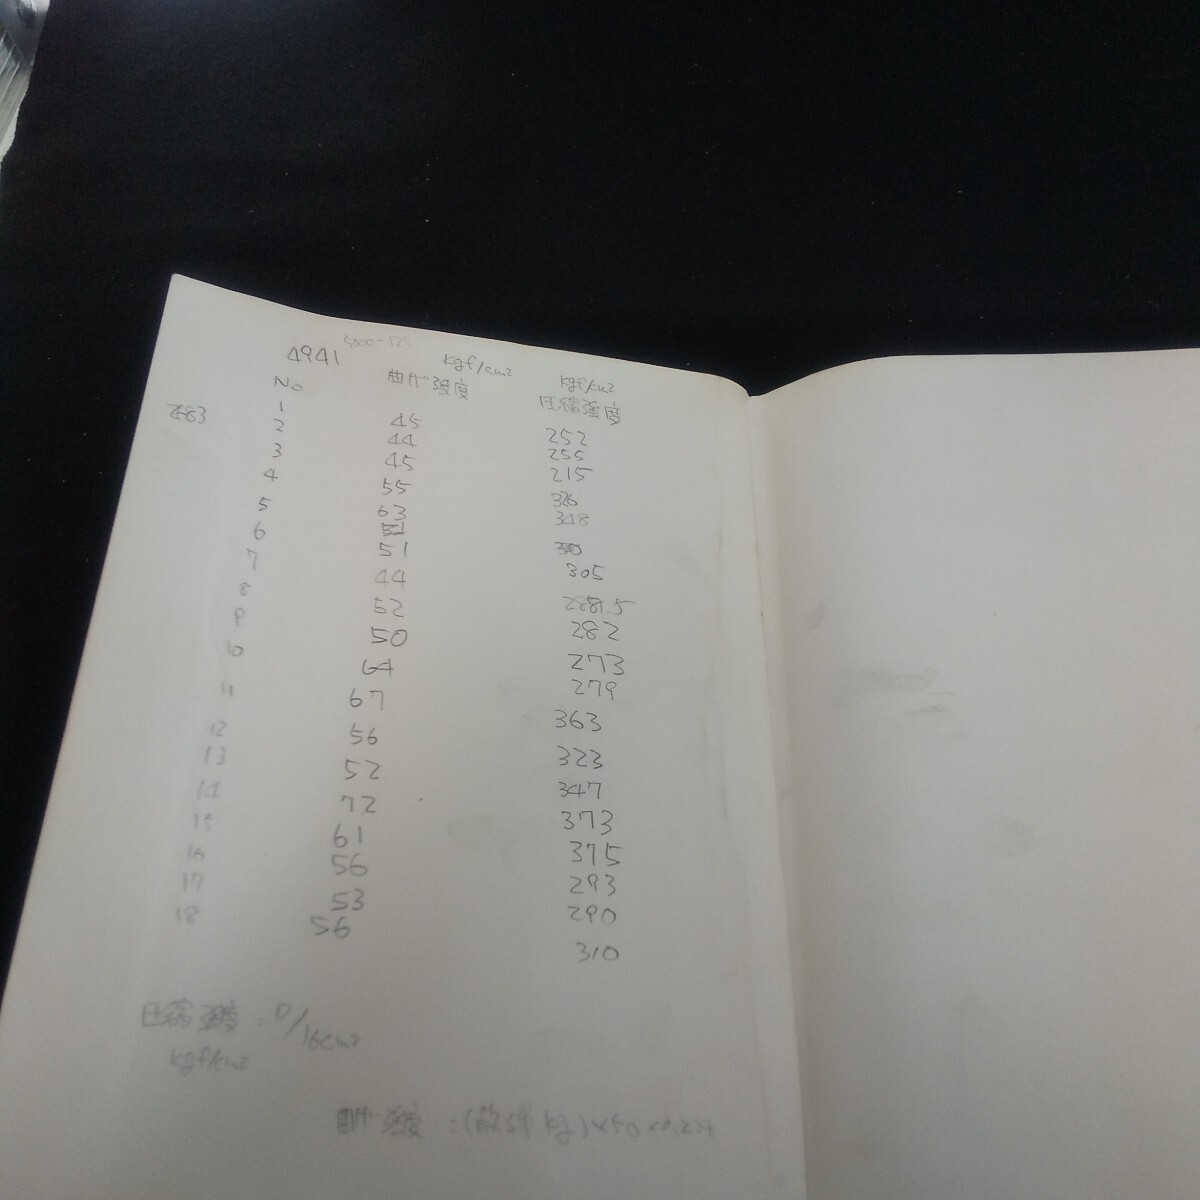 4941 5000-125
kgf/cm2 kgf/cm2
No 曲げ強度 圧縮強度
1 45 252
2683
2 44 255
3 45 215
4 55 326
5 63 348
6 51 305
7 44
8 52 282
9 50 273
10 64 279
11 67 363
12 56 323
13 52 347
14 72 373
15 61 375
16 56 293
17 53 290
18 56 310
圧縮強度 = P/16cm2
kgf/cm2
曲げ強度 = (散弾kg)×50×0.234